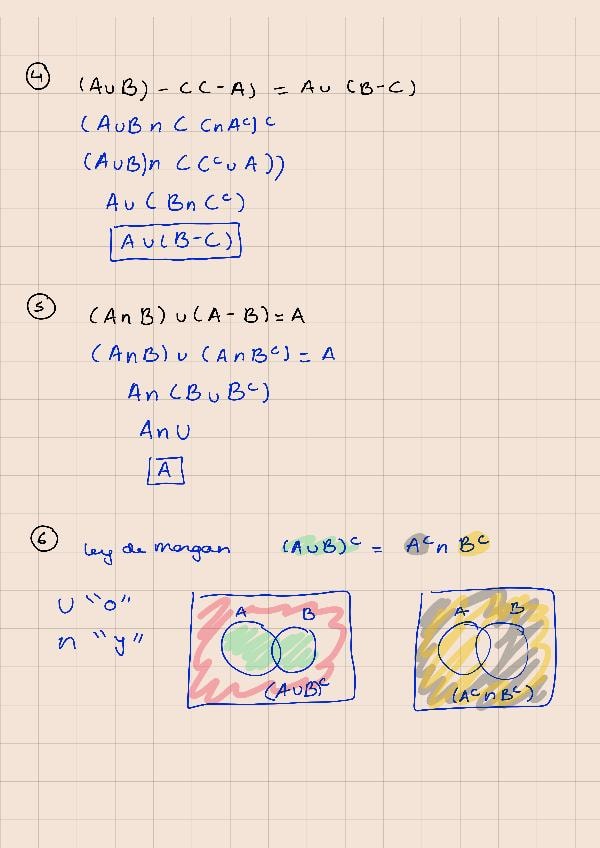 4
(A∪B) - (C-A) = A∪ (B-C)
(A∪B ∩ ( C∩Aᶜ)ᶜ
(A∪B)∩ ( Cᶜ∪ A))
A∪ ( B∩ Cᶜ)
A∪(B-C)
5
(A∩B) ∪ (A-B)= A
(A∩B) ∪ (A∩Bᶜ) = A
A∩ (B∪Bᶜ)
A∩U
A
6
ley de morgan (A∪B)ᶜ = Aᶜ∩ Bᶜ
∪ "o"
∩ "y"
A B
(A∪B)ᶜ
A B
(Aᶜ∩Bᶜ)